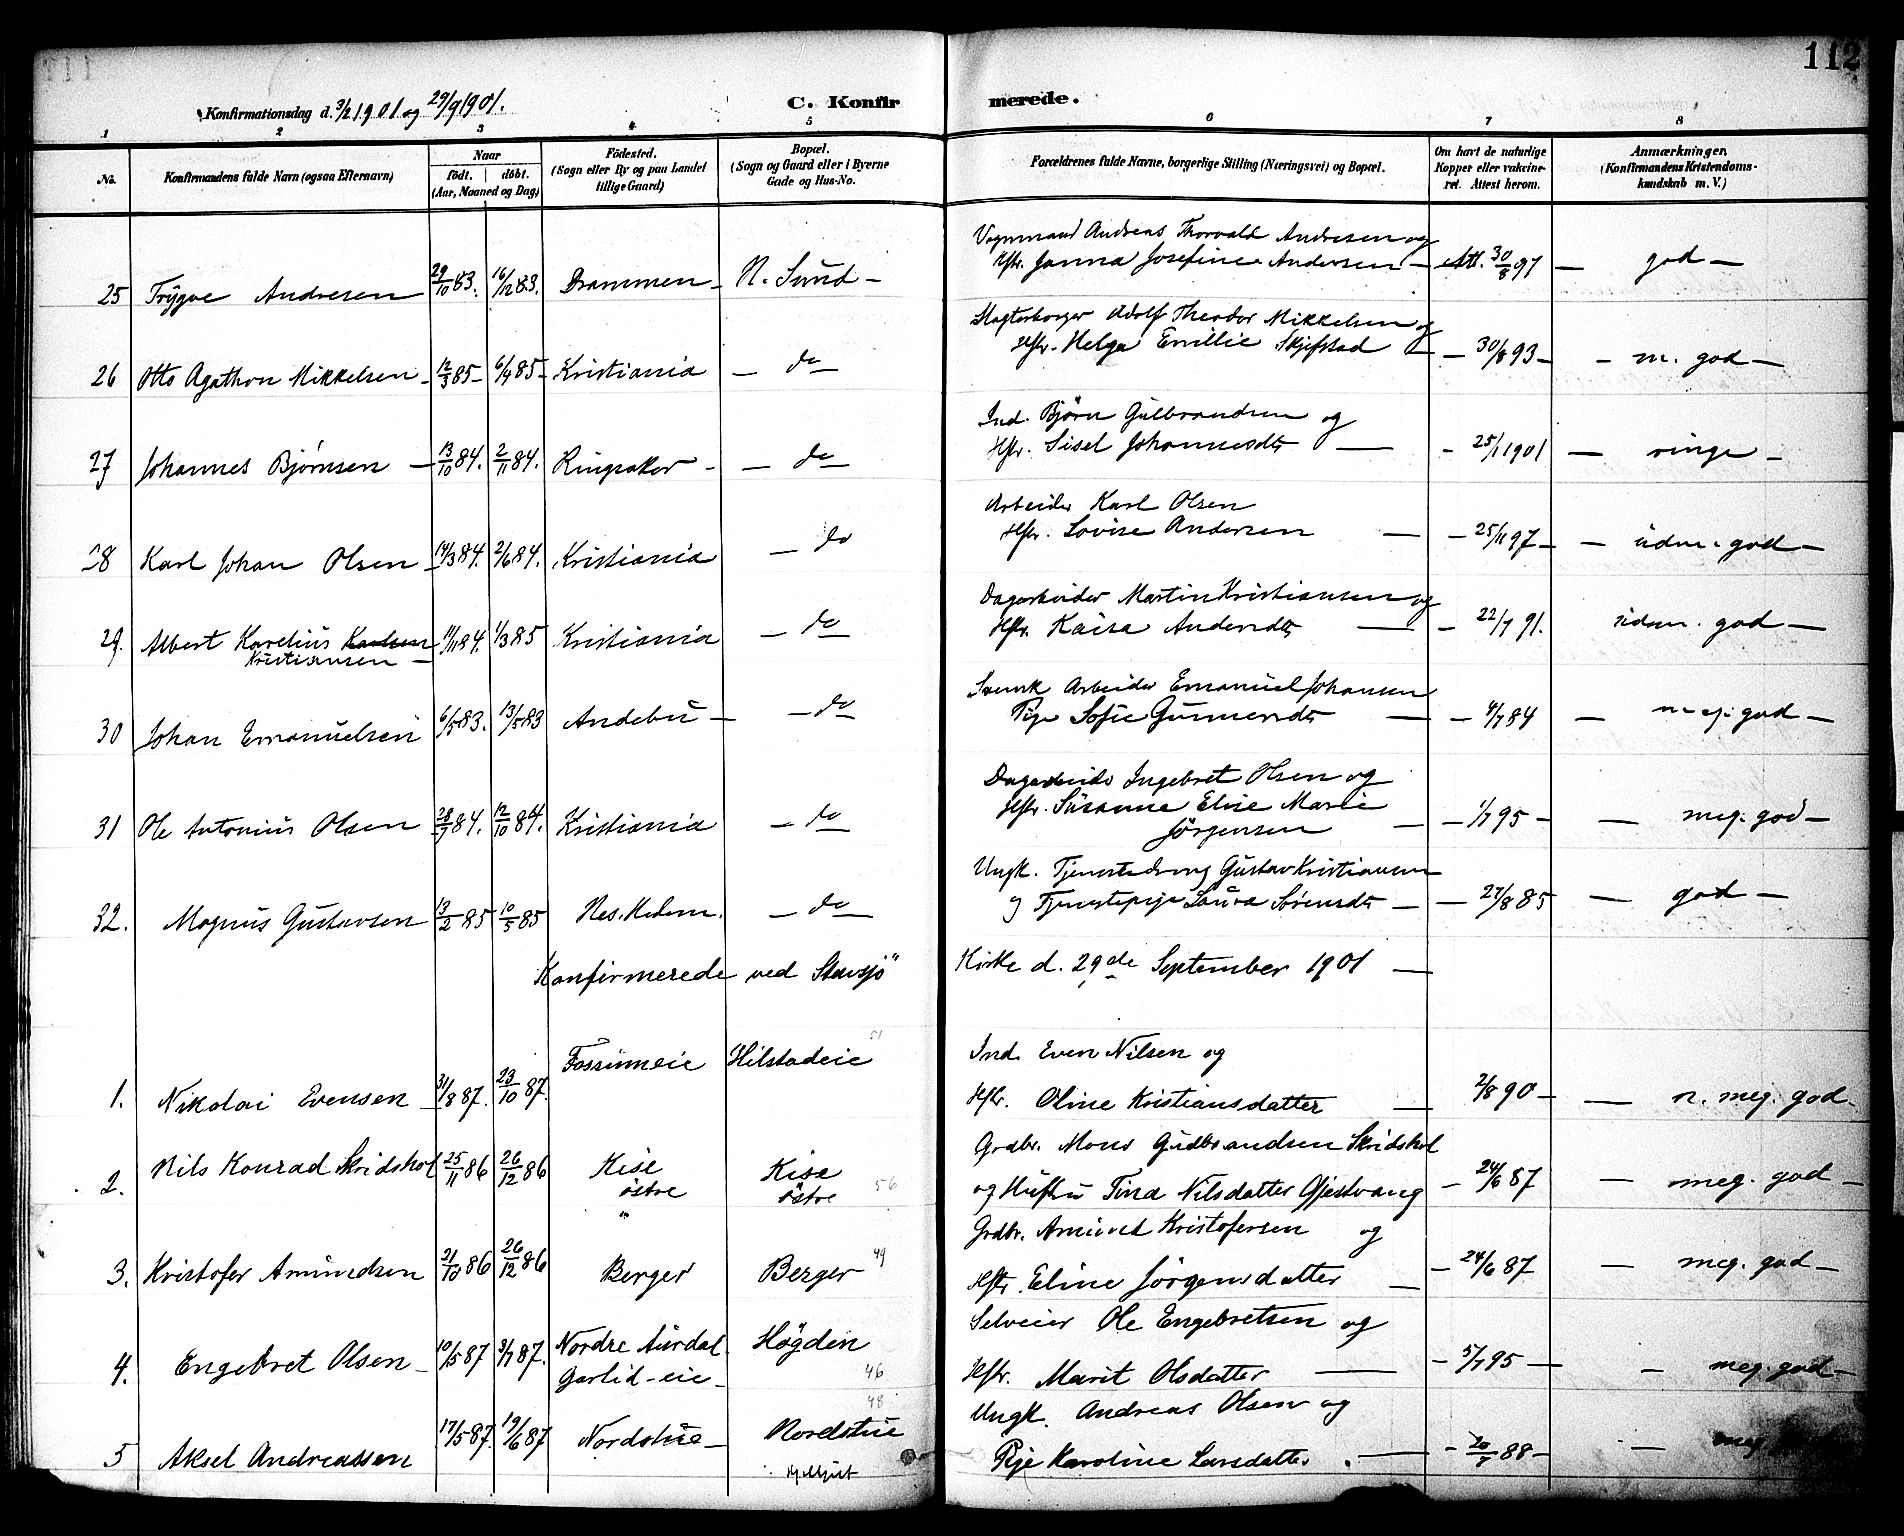 112
Konfirmationsdag d. 3/2 1901 og 29/9 1901.
C. Konfirmerede.
1 2 3 4 5 6 7 8
No. Konfirmandens fulde Navn (ogsaa Efternavn) Naar födt. döbt. (Aar, Maaned og Dag) Födested. (Sogn eller By og paa Landet tillige Gaard) Bopæl. (Sogn og Gaard eller i Byerne Gade og Hus-No. Forældrenes fulde Navne, borgerlige Stilling (Næringsvei) og Bopæl. Om havt de naturlige Kopper eller vakcineret. Attest herom. Anmærkninger. (Konfirmandens Kristendomskundskab m. V.)
Vognmand Andreas Thorvald Andresen og
25 Trygve Andresen 29/10 83. 16/12 83. Drammen - N. Sund - Hstr. Janna Josefine Andersen - Att. 30/8 97 - god -
Slagterborger Adolf Theodor Mikkelsen og
26 Otto Agathon Mikkelsen - 12/3 85 - 6/4 85 - Kristiania - do Hstr. Helga Emilie Skjefstad - 30/8 93 - - m. god -
Ind. Björn Gulbrandsen og
27 Johannes Bjørnsen - 13/10 84. 2/11 84. Ringsaker - - do Hstr. Sisel Johannesdtr - - 25/1 1901 - ringe -
Arbeider Karl Olsen
28 Karl Johan Olsen - 14/3 84. 2/6 84. Kristiania - do Hstr. Lovise Andersen - - 25/11 97 - - udm. god -
Dagarbeider Martin Kristiansen og
29. Albert Karelius Karlsen 11/11 84. 1/3 85 Kristiania - do Hstr. Kaisa Andersdtr - - 22/7 91. udm. god -
Kristiansen -
Svensk Arbeider Emanuel Johansen
30 Johan Emanuelsen 6/5 83. 13/5 83 Andebu - - do Pige Sofie Gunnersdtr - - 4/7 84 - meg. god -
Dagarbeider Ingebret Olsen og
31 Ole Antonius Olsen 28/7 84. 12/10 84. Kristiania - do Hstr. Susanne Elise Marie - 1/7 95 - - meg. god -
Jørgensen -
Ungk. Tjenestedreng Gustav Kristiansen
32. Magnus Gustavsen 13/2 85 10/5 85 Nes. Hedem. - do og Tjenestepige Laura Sørensdtr - - 27/8 85 - god -
Konfirmerede ved Stavsjö" Kirke d. 29de September 1901 -
51
Fossumeie Hilstadeie Ind. Even Nilsen og
1. Nikolai Evensen - 31/8 87. 23/10 87. Hstr. Oline Kristiansdatter - 2/8 90 - - n. meg. god -
Grdbr. Mons Gudbrandsen Skridshol
2. Nils Konrad Skridshol 25/11 86 26/12 86 Kise östre Kise östre 56 og Hustru Tina Nilsdatter Gjestvang - 24/6 87 - meg. god -
Grdbr. Amund Kristofersen og
3. Kristofer Amundsen 21/10 86 26/12 86 Berger Berger 49 Hstr. Eline Jörgensdatter - - 24/6 87 - meg. god -
Selveier Ole Engebretsen og
4. Engebret Olsen - 10/5 87 3/7 87. Nordre Aurdal Högden Hstr. Marit Olsdatter - - 5/7 95 - - meg. god -
Garlid-eie - 46
48
Ungk. Andreas Olsen og
5 Aksel Andreassen 17/5 87. 19/6 87 Nordstue - Nordstue Pige Karoline Larsdatter. - - 20/7 88 - - meg.